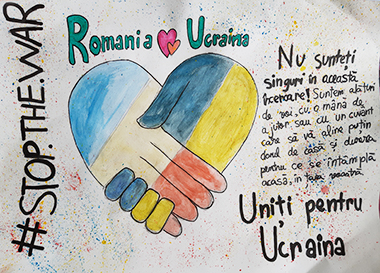 #STOP.THE.WAR
Romania Ucraina
Nu sunteți
singuri în această
încercare! Suntem alături
de voi, cu o mână de
ajutor sau cu un cuvânt
care să vă aline puțin
dorul de casă și durerea
pentru ce se întâmplă
acasă, în țara voastră.
Uniți pentru
Ucraina